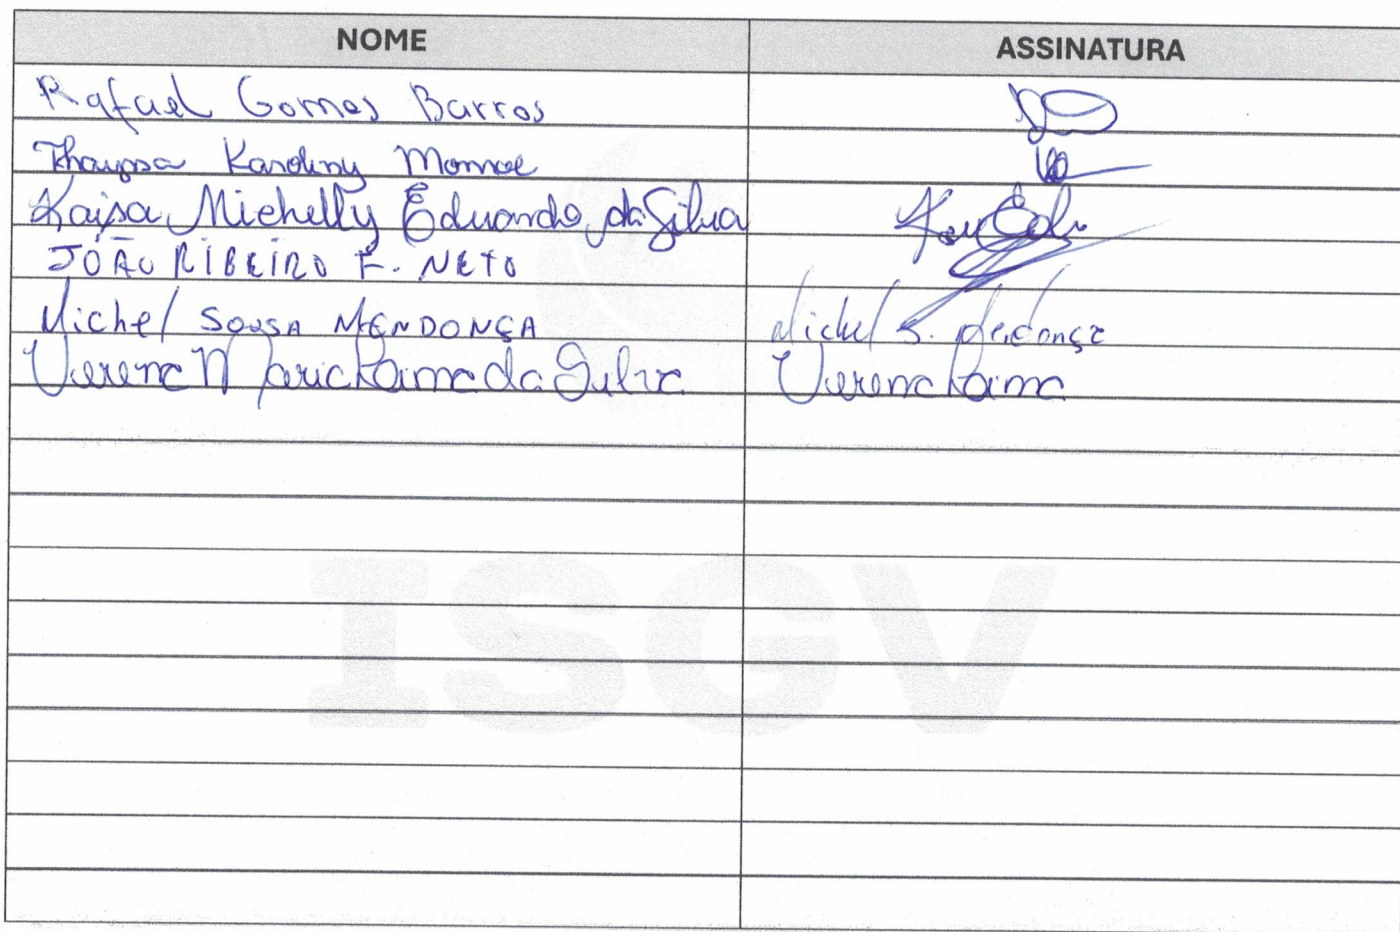 NOME ASSINATURA
Rafael Gomes Barros
Thayssa Karoliny
Kaisa Michelly Eduardo da Silva
JOÃO RIBEIRO F. NETO
Michel SOUSA MENDONÇA Michel S. Mendonça
Verena Maria Lima da Silva Verena Lima
ISGV